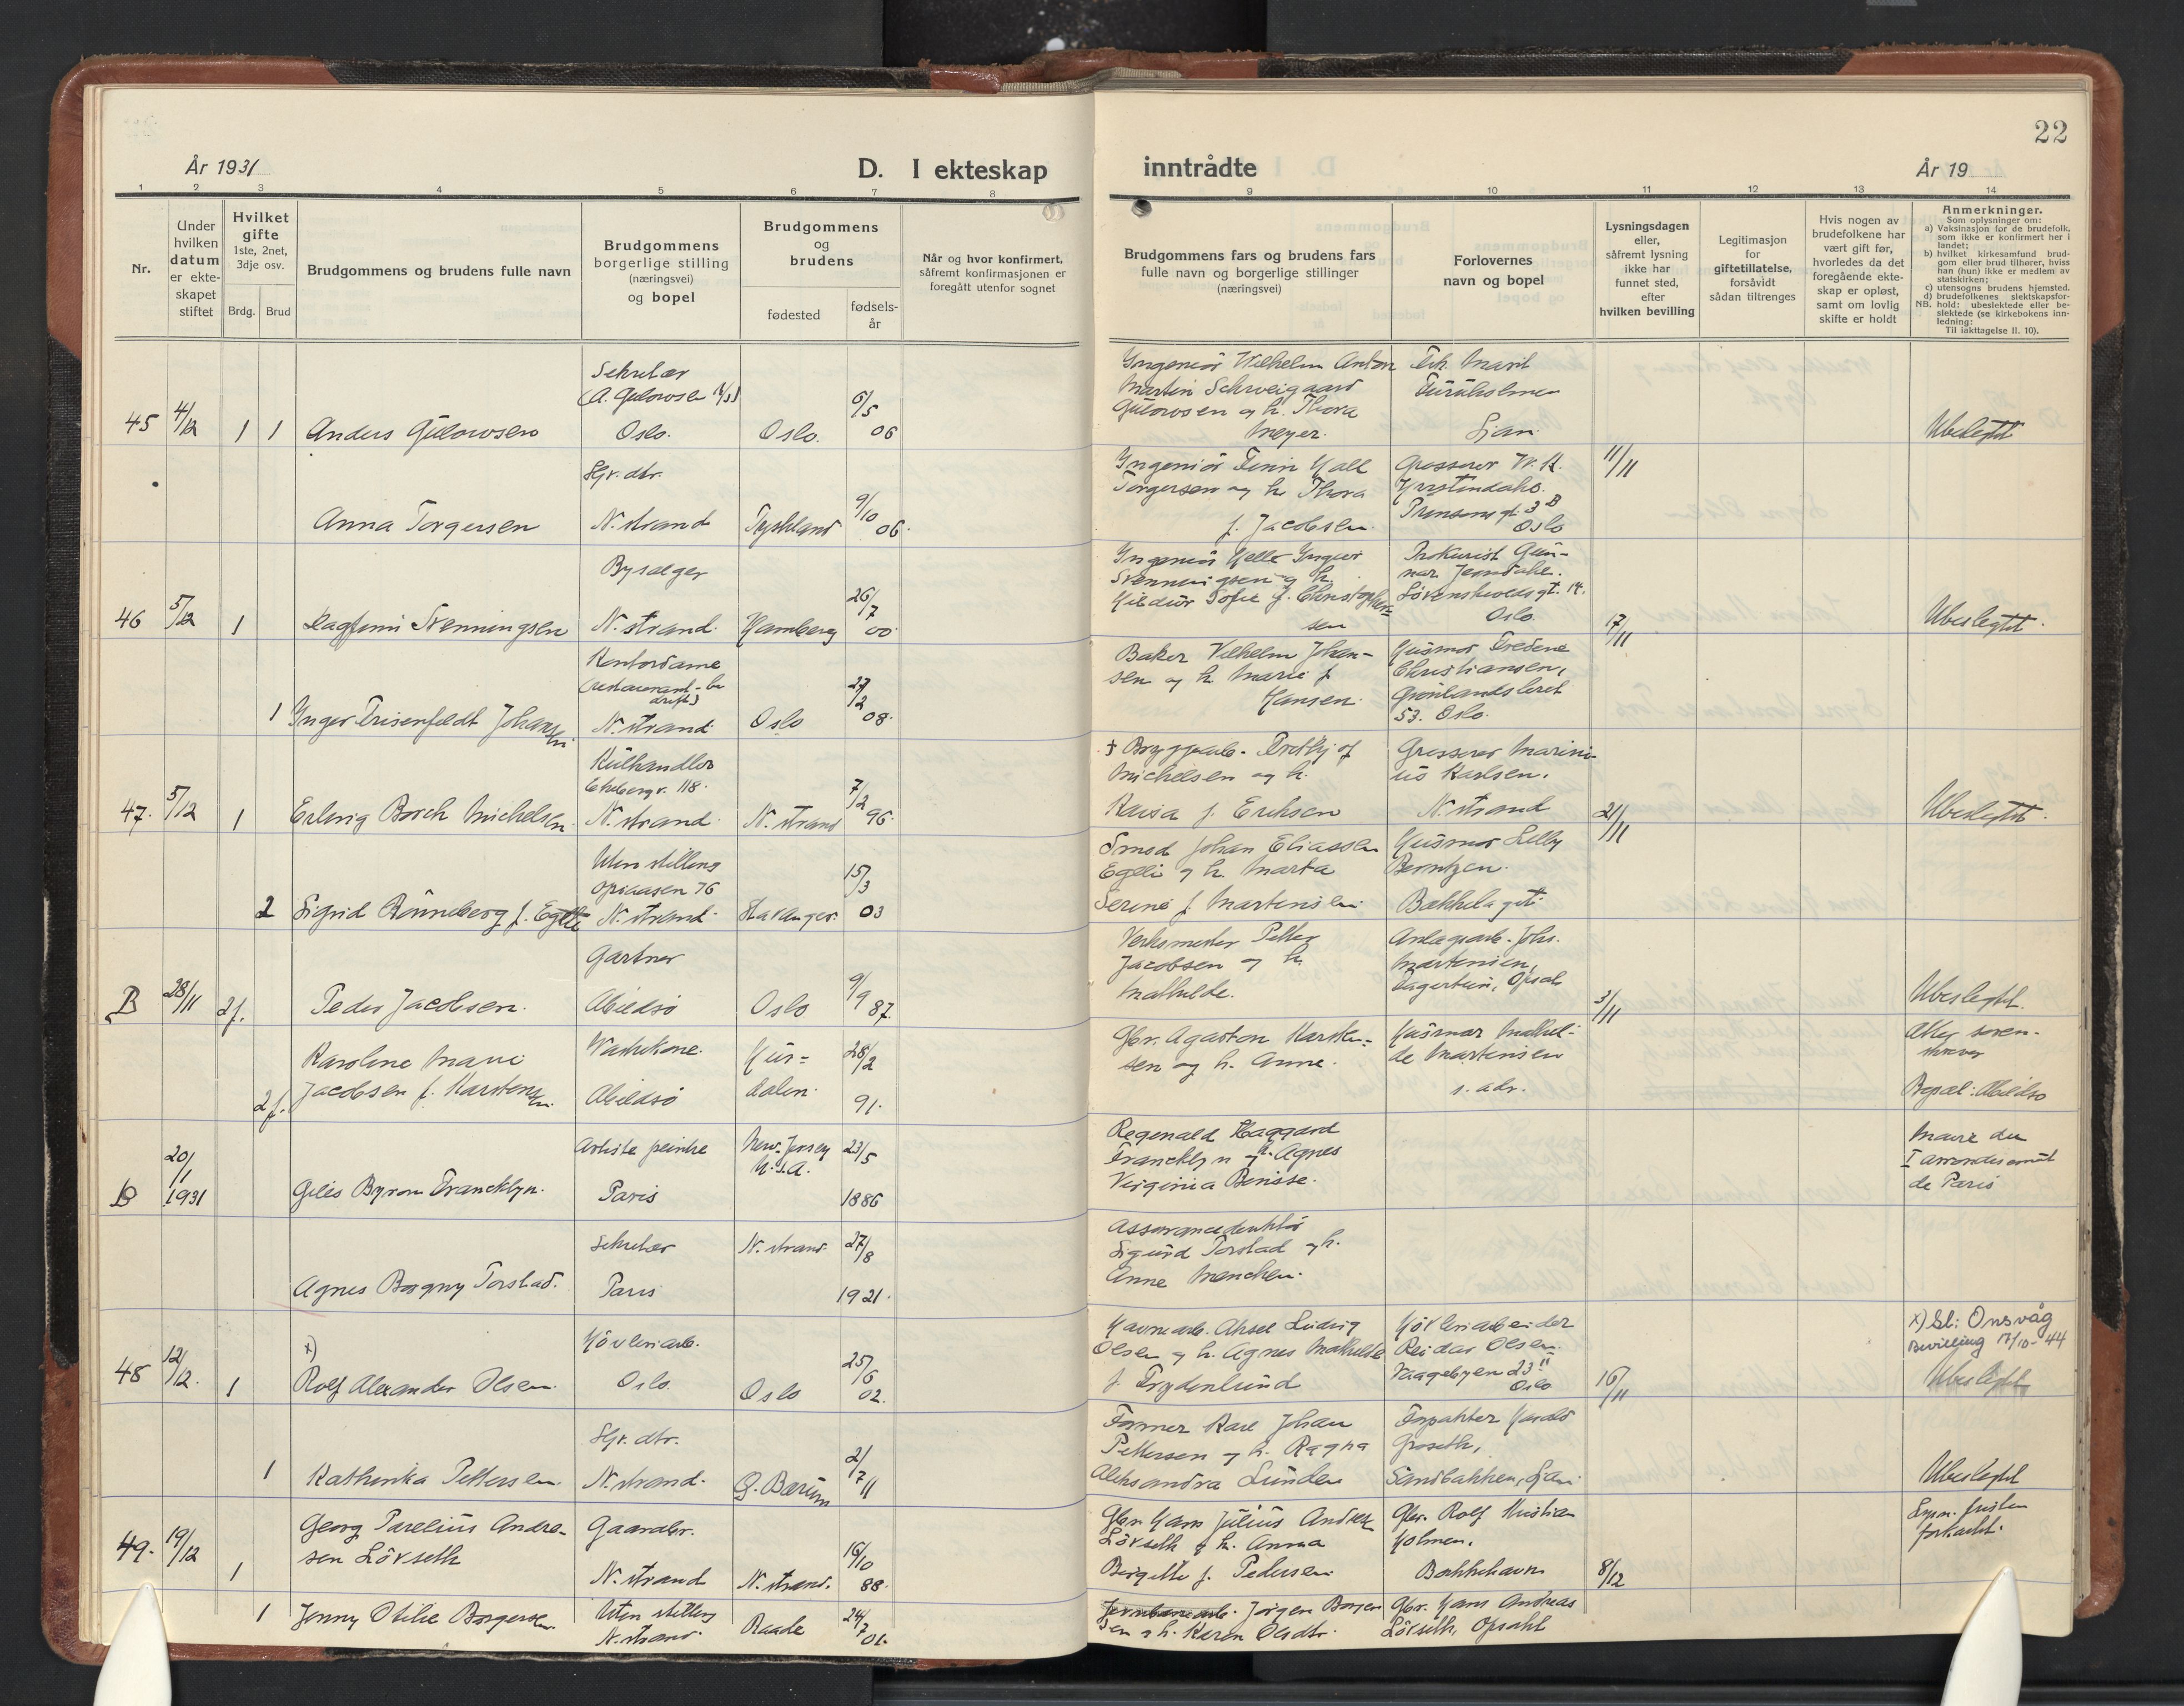 22
År 1931
D. I ekteskap
inntrådte
År 19
1 2 3 4 5 6 7 8
9 10 11 12 13 14
Nr.
Under
hvilken
datum
er ekte-
skapet
stiftet
Hvilket
gifte
1ste, 2net,
3dje osv.
Brdg. Brud
Brudgommens og brudens fulle navn
Brudgommens
borgerlige stilling
(næringsvei)
og bopel
Brudgommens
og
brudens
fødested
fødsels-
år
Når og hvor konfirmert,
såfremt konfirmasjonen er
foregått utenfor sognet
Brudgommens fars og brudens fars
fulle navn og borgerlige stillinger
(næringsvei)
Forlovernes
navn og bopel
Lysningsdagen
eller,
såfremt lysning
ikke har
funnet sted,
efter
hvilken bevilling
Legitimasjon
for
giftetillatelse,
forsåvidt
sådan tiltrenges
Hvis nogen av
brudefolkene har
vært gift før,
hvorledes da det
foregående ekte-
skap er opløst,
samt om lovlig
skifte er holdt
Anmerkninger.
Som oplysninger om:
a) Vaksinasjon for de brudefolk,
som ikke er konfirmert her i
landet;
b) hvilket kirkesamfund brud-
gom eller brud tilhører, hviss
han (hun) ikke er medlem av
statskirken;
c) utensogns brudens hjemsted.
d) brudefolkenes slektskapsfor-
NB. hold: ubeslektede eller be-
slektede (se kirkebokens inn-
ledning:
Til iakttagelse II. 10).
45 4/12 1 1 Anders Gulowsen
Sekretær
(A. Gulowsen A/S)
Oslo.
Oslo. 6/5 06
Ingeniør Wilhelm Anton
Martin Schweigaard
Gulowsen og h. Thora
Meyer.
Frk. Marit
Furuholmen
Ljan
Ubeslektet
Anna Torgersen
Hgv. dtr.
N. strand Tyskland 9/10 06.
Ingeniør Finn Hall
Torgersen og h. Thora
f. Jacobsen.
Grosserer W. K.
3 B
Oslo
11/11
46 5/12 1 Dagfinn Svenningsen
Byselger
N. strand. Hamberg 26/7 00.
Ingeniør Helle Yngvar
Svenningsen og h.
Hildur Sofie f. Christopher-
sen
Prokurist Gun-
nar Jerndahl.
Løvenskioldsgt. 14.
Oslo
17/11
Ubeslektet.
1 Inger Frisenfeldt Johansen
Kontordame
(restaurant-be
drift)
N. strand. Oslo 27/2 08.
Baker Vilhelm Johan-
sen og h. Marie f.
Hansen.
Husmor Fredene
Christiansen,
Grønlandsleret
53. Oslo.
47. 5/12 1 Erling Borch Michelsen.
Kulhandler
Ekebergv. 118.
N. strand. N. strand 7/2 96.
Michelsen og h.
Kaisa f. Eriksen
Grosserer Marini-
us Karlsen.
N. strand
21/11
Ubeslektet.
2 Sigrid Rønneberg f. Egeli
Uten stilling
Opsaasen 76
N. strand. Stavanger. 15/3 03
Smed Johan Eliassen
Egeli og h. Marta
Serine f. Martinsen.
Husmor Lilly
Berntzen.
Bækkelaget.
B 28/11 2f. Peder Jacobsen.
Gartner
Abildsø Oslo 9/9 87.
Verksmester Petter
Jacobsen og h.
Mathilde.
Anlægsarb. Johs.
Martinsen,
Opsal
3/11
Ubeslektet.
2f. Karoline Marie
Jacobsen f. Karstensen.
Vaskekone.
Abildsø
Hur-
dalen. 28/2 91.
Gbr. Agaston Karsten-
sen og h. Anne.
Husmor Mathil-
de Martinsen
s. adr.
Aker soren-
skriver
Bopæl: Abildsø
B 20/1 1931 Giles Byron Francklyn.
Artiste peintre
Paris
New-Jersey
U.S.A. 23/5 1886
Reginald Haggard
Francklyn og h. Agnes
Virginia Binisse.
Maire du
I arrondissement
de Paris
Agnes Borgny Torstad.
Sekretær
Paris
N. strand. 27/8 1921.
Assurancedirektør
Sigurd Torstad og h.
Anne Menchen.
48 12/12. 1 x) Rolf Alexander Olsen.
Høvleriarb.
Oslo. Oslo 25/6 02.
Havnearb. Aksel Ludvig
Olsen og h. Agnes Mathilde
f. Frydenlund
Høvleriarbeider
Reidar Olsen.
Vaagebyen 23 II
Oslo
16/11
x) Sl: Onsvåg
Bevilling 17/10-44
Ubeslektet
1 Kathinka Pettersen.
Hgv. dtr.
N. strand. Ø. Bærum 2/7 11
Former Karl Johan
Pettersen og h. Ragna
Aleksandra Lunden
Forpakter Harald
Groseth,
Sandbakken, Ljan.
Ubeslektet
49. 19/12 1 Georg Parelius Andre-
sen Løvseth
Gaardbr.
N. strand N. strand. 16/10 88.
Gbr. Hans Julius Andresen
Løvseth og h. Anna
Birgitte f. Pedersen.
Gbr. Rolf Kristian
Holmen.
Bakkehavn
8/12
Lysn. fristen
forkortet.
1 Jenny Otilie Borgersen.
Uten stilling
N. strand. Raade 24/7 01.
Jernbanearb. Jørgen Borger
sen og h. Karen Olsdtr.
Gbr. Hans Andreas
Løvseth, Opsahl